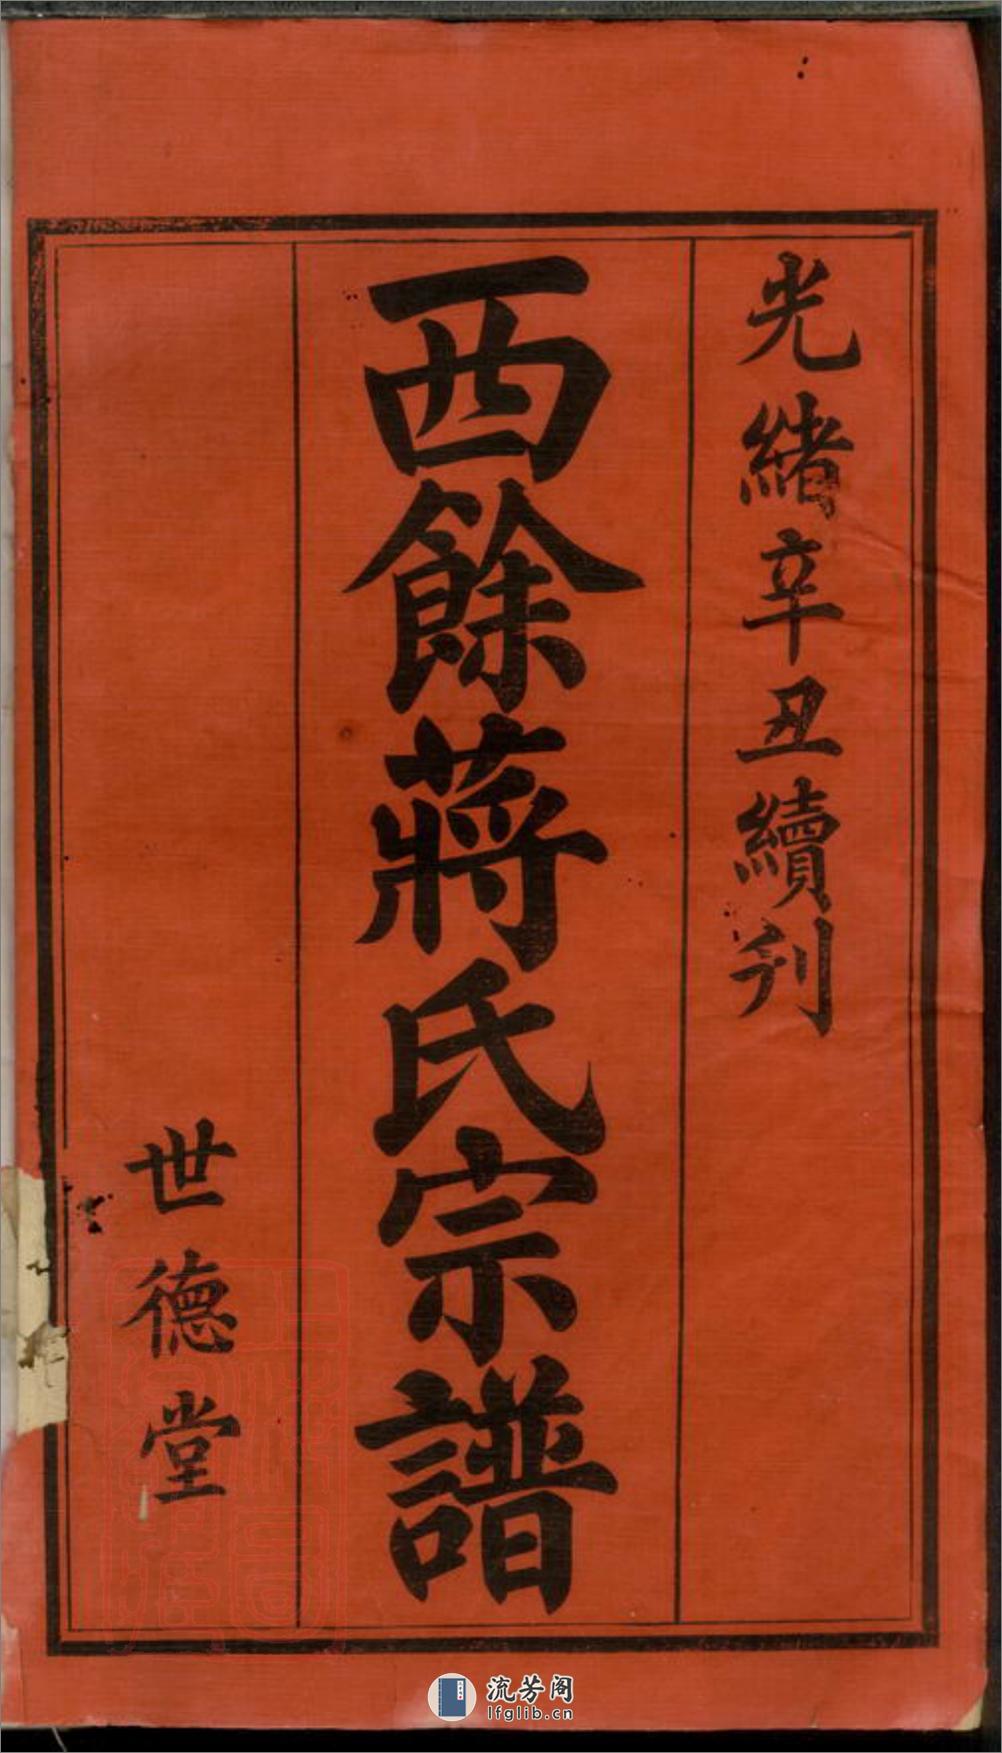 光緒辛丑續刊
西餘蔣氏宗譜
世德堂
流芳阁
lfglib.cn